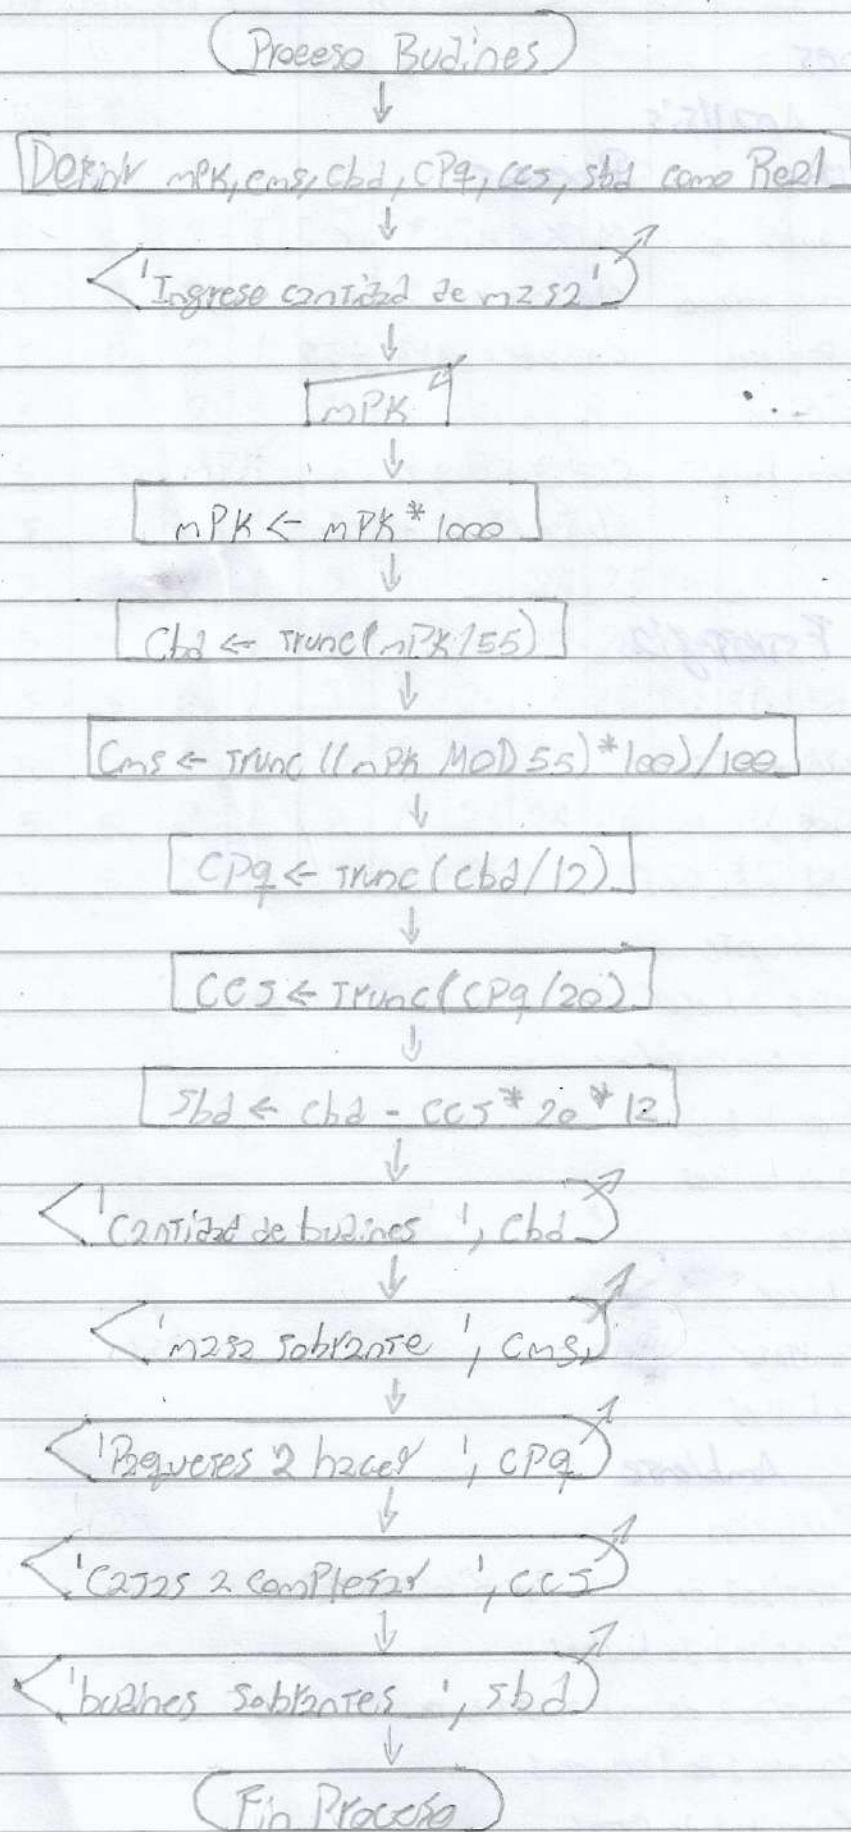 Proceso Budines
Definir mPK, cms, cbd, CPq, ccs, sbd como Real
'Ingrese cantidad de masa'
mPK
mPK ← mPK * 1000
Cbd ← Trunc(mPK/55)
Cms ← Trunc((mPK MOD 55)*100)/100
CPq ← Trunc(cbd/12)
CCS ← Trunc(CPq/20)
Sbd ← cbd - CCS * 20 * 12
'Cantidad de budines ', Cbd
'masa sobrante ', Cms
'Paquetes a hacer ', CPq
'Cajas a completar ', CCS
'budines sobrantes ', sbd
Fin Proceso